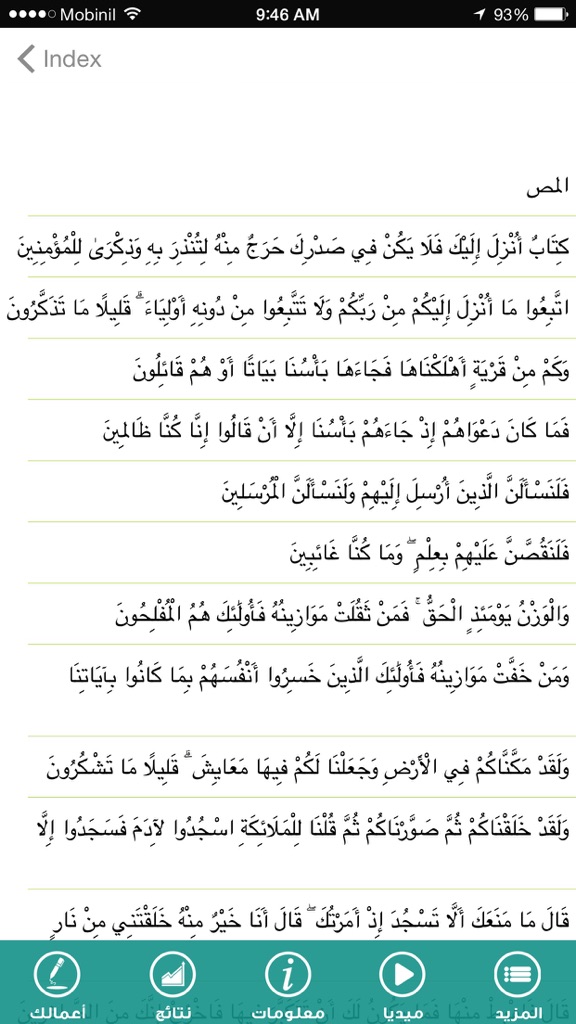 Mobinil 9:46 AM 93%
Index
المص
كِتَابٌ أُنْزِلَ إِلَيْكَ فَلَا يَكُنْ فِي صَدْرِكَ حَرَجٌ مِنْهُ لِتُنْذِرَ بِهِ وَذِكْرَىٰ لِلْمُؤْمِنِينَ
اتَّبِعُوا مَا أُنْزِلَ إِلَيْكُمْ مِنْ رَبِّكُمْ وَلَا تَتَّبِعُوا مِنْ دُونِهِ أَوْلِيَاءَ ۗ قَلِيلًا مَا تَذَكَّرُونَ
وَكَمْ مِنْ قَرْيَةٍ أَهْلَكْنَاهَا فَجَاءَهَا بَأْسُنَا بَيَاتًا أَوْ هُمْ قَائِلُونَ
فَمَا كَانَ دَعْوَاهُمْ إِذْ جَاءَهُمْ بَأْسُنَا إِلَّا أَنْ قَالُوا إِنَّا كُنَّا ظَالِمِينَ
فَلَنَسْأَلَنَّ الَّذِينَ أُرْسِلَ إِلَيْهِمْ وَلَنَسْأَلَنَّ الْمُرْسَلِينَ
فَلَنَقُصَّنَّ عَلَيْهِمْ بِعِلْمٍ ۖ وَمَا كُنَّا غَائِبِينَ
وَالْوَزْنُ يَوْمَئِذٍ الْحَقُّ ۚ فَمَنْ ثَقُلَتْ مَوَازِينُهُ فَأُولَٰئِكَ هُمُ الْمُفْلِحُونَ
وَمَنْ خَفَّتْ مَوَازِينُهُ فَأُولَٰئِكَ الَّذِينَ خَسِرُوا أَنْفُسَهُمْ بِمَا كَانُوا بِآيَاتِنَا
وَلَقَدْ مَكَّنَّاكُمْ فِي الْأَرْضِ وَجَعَلْنَا لَكُمْ فِيهَا مَعَايِشَ ۗ قَلِيلًا مَا تَشْكُرُونَ
وَلَقَدْ خَلَقْنَاكُمْ ثُمَّ صَوَّرْنَاكُمْ ثُمَّ قُلْنَا لِلْمَلَائِكَةِ اسْجُدُوا لِآدَمَ فَسَجَدُوا إِلَّا
قَالَ مَا مَنَعَكَ أَلَّا تَسْجُدَ إِذْ أَمَرْتُكَ ۖ قَالَ أَنَا خَيْرٌ مِنْهُ خَلَقْتَنِي مِنْ نَارٍ
المزيد ميديا معلومات نتائج أعمالك